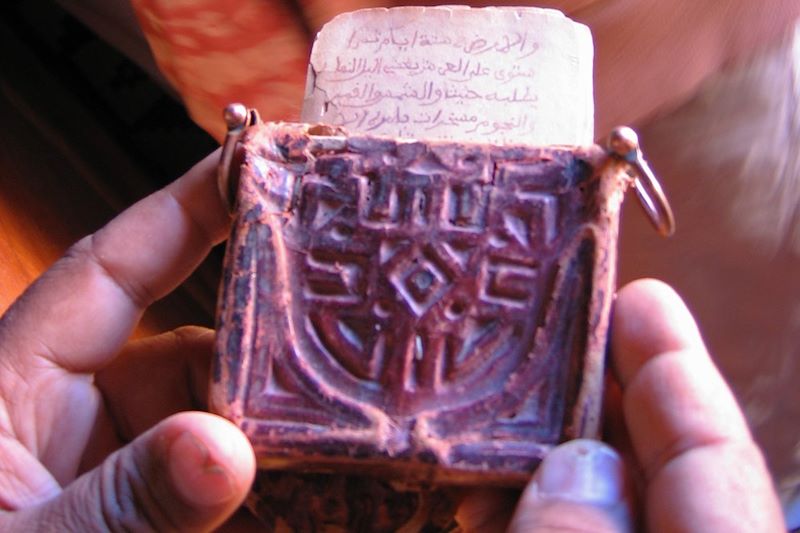 والارض في ستة ايام ثم ا
ستوى على العرش يغشى اليل النهار
يطلبه حثيثا والشمس والقمر
والنجوم مسخرات بامره الا